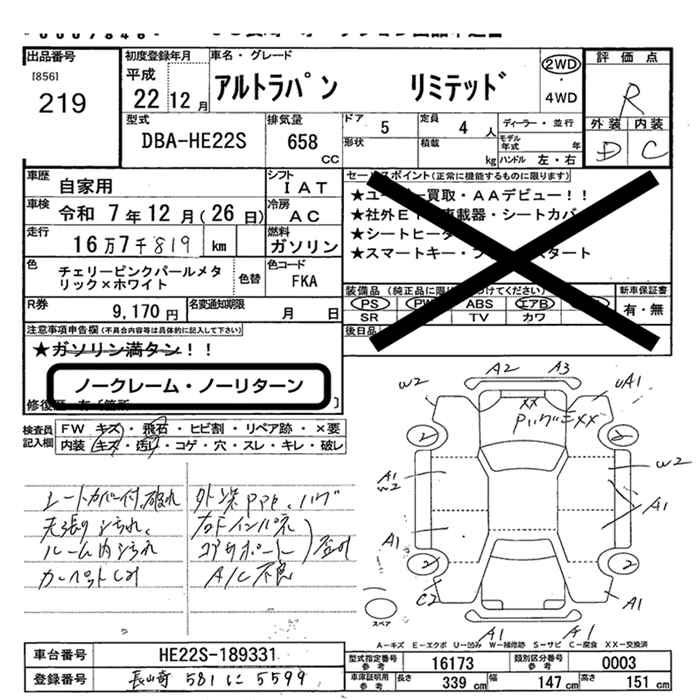 出品番号
[856]
219
初度登録年月
平成
22年12月
車名・グレード
アルトラパン リミテッド
2WD
・
4WD
評価点
R
外装 内装
D C
型式
DBA-HE22S
排気量
658 CC
ドア 5
定員 4 人
形状
積載 kg
ディーラー・並行
モデル年式 年
ハンドル 左・右
車歴 自家用
シフト I AT
車検 令和 7年12月(26日)
冷房 AC
走行 16万7千819 km
燃料 ガソリン
色 チェリーピンクパールメタリック×ホワイト
色替
色コード FKA
R券 9,170円
名変通知期限 月 日
セールスポイント(正常に機能するものに限ります)
★ユーザー買取・AAデビュー!!
★社外E
車載器・シートカバ
★シートヒータ
★スマートキー・プ
スタート
装備品(純正品に限り
つけてください)
PS PW ABS エアB
SR TV カワ
後日品
新車保証書
有・無
注意事項申告欄(不具合内容等は具体的に記入して下さい)
★ガソリン満タン!!
ノークレーム・ノーリターン
修復歴
検査員記入欄
FW キズ・飛石・ヒビ割・リペア跡・×要
内装 キズ・汚れ・コゲ・穴・スレ・キレ・破レ
シートカバー付、破れ
天張りヨゴれ、
ルーム内ヨゴれ
カーペットシミ
外装
右Fインパネ
コアサポート
A/C不良
A2 A3
W2 UA1
XX
XX
2 2
A1
W2
W2
A1
A1
2 2
C2
A1
A1 A1
スペア
A-キズ E-エクボ U-凹み W-補修跡 S-サビ C-腐食 XX-交換済
車台番号 HE22S-189331
登録番号 長崎 581 に 5599
型式指定番号参考 16173
類別区分番号参考 0003
車庫証明用参考 長さ 339 cm 幅 147 cm 高さ 151 cm